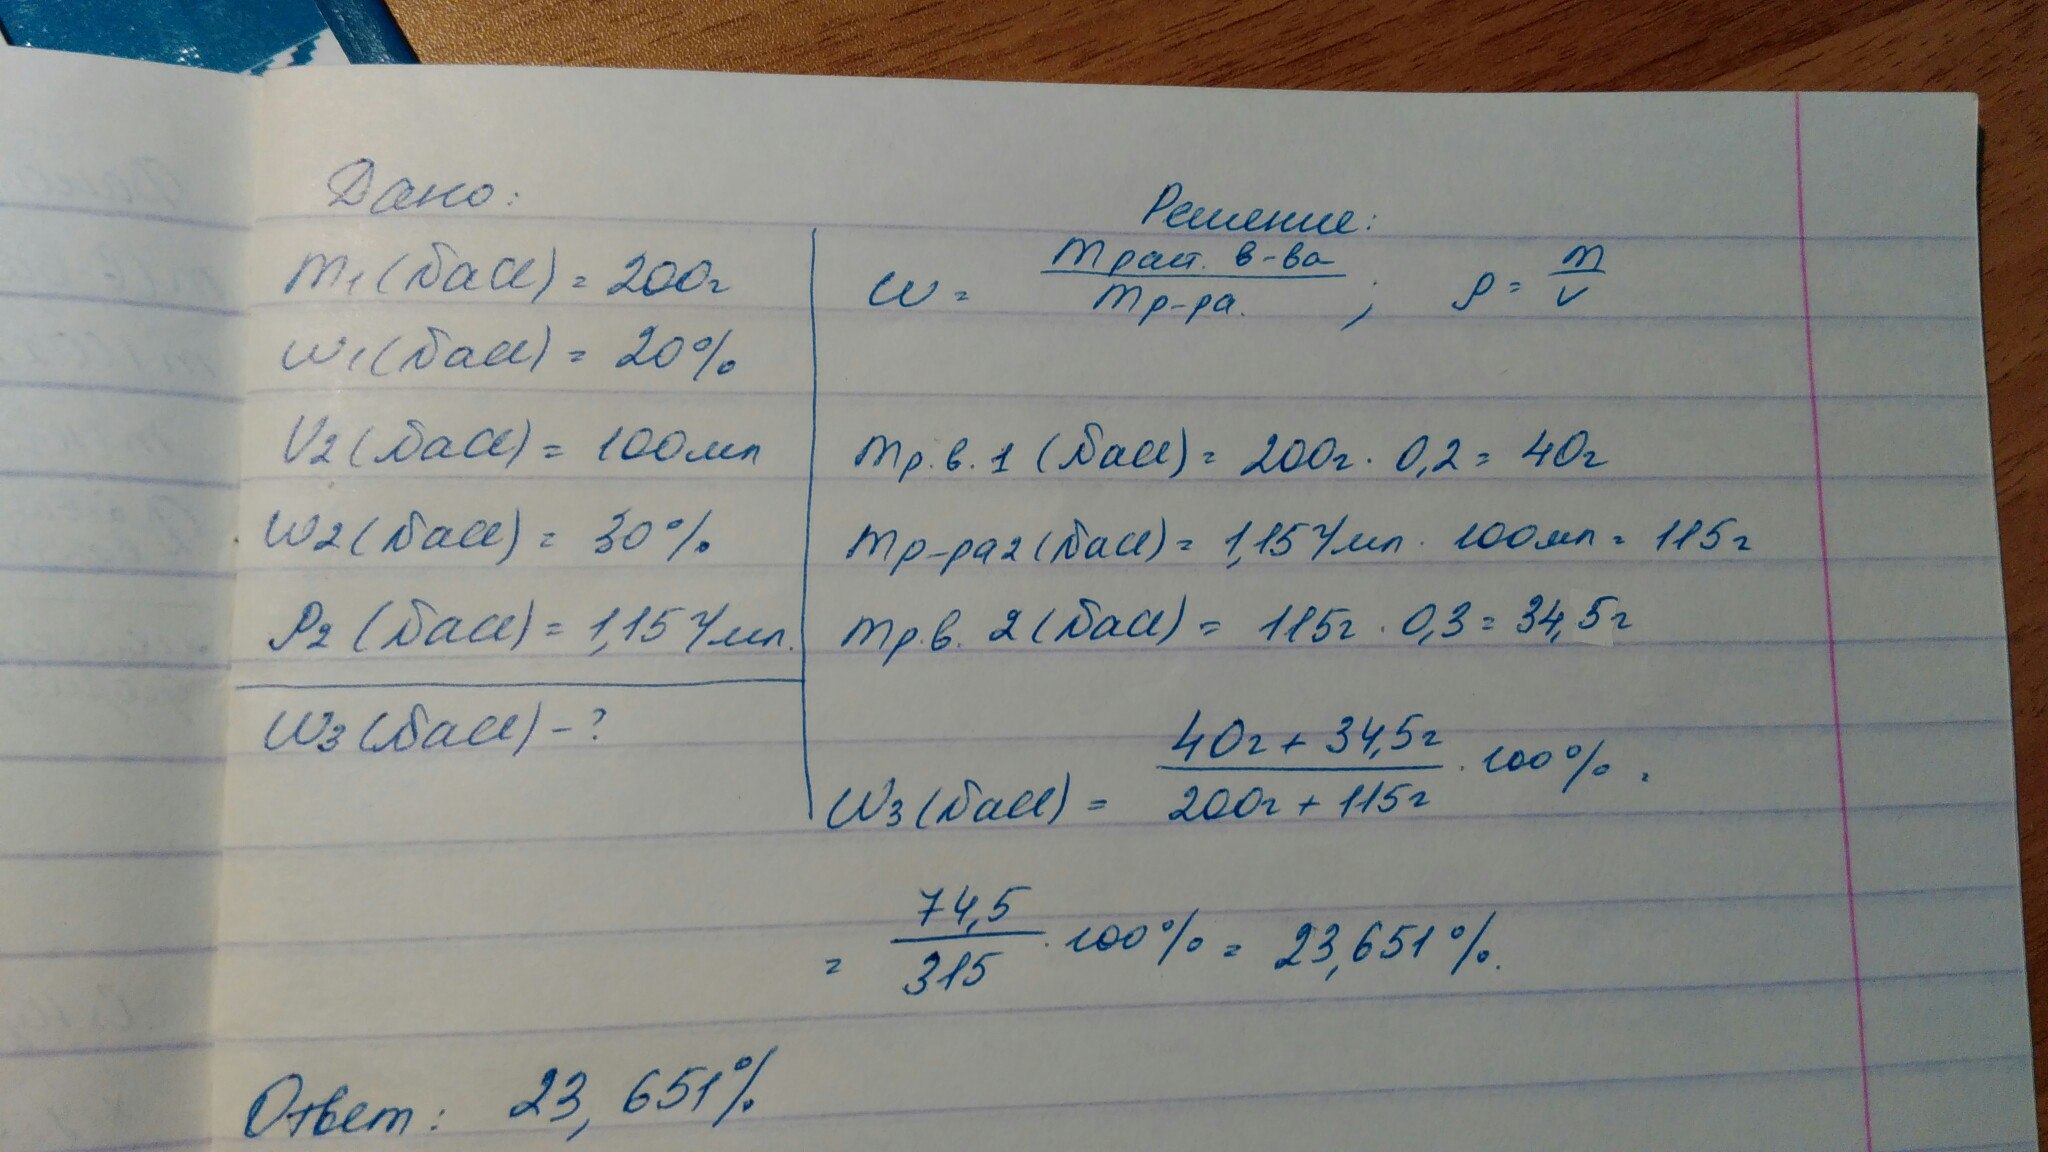 Дано:
m1(NaCl) = 200г
w1(NaCl) = 20%
V2(NaCl) = 100мл
w2(NaCl) = 30%
ρ2(NaCl) = 1,15 г/мл.
w3(NaCl) - ?
Решение:
w = mраст. в-ва / mр-ра. ; ρ = m / v
mр.в.1 (NaCl) = 200г · 0,2 = 40г
mр-ра2(NaCl) = 1,15 г/мл · 100мл = 115г
mр.в. 2(NaCl) = 115г · 0,3 = 34,5г
w3(NaCl) = 40г + 34,5г / 200г + 115г · 100% =
= 74,5 / 315 · 100% = 23,651%.
Ответ: 23,651%